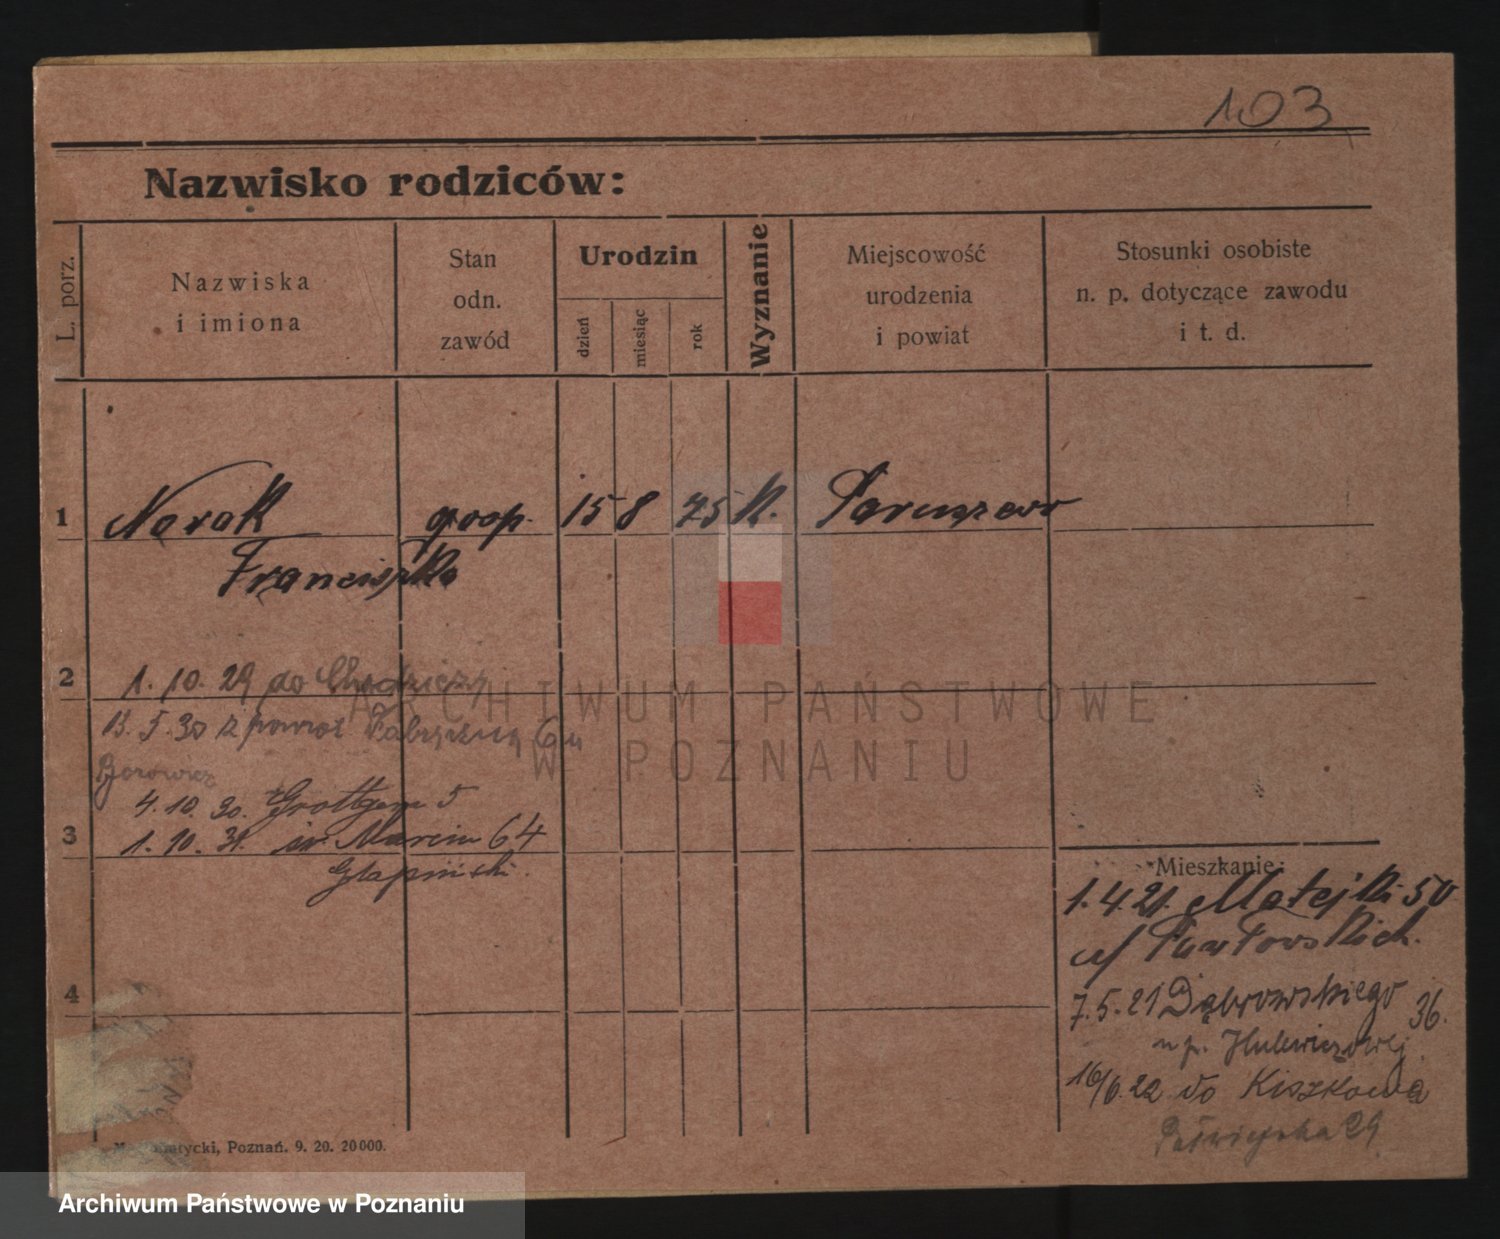 103
Nazwisko rodziców:
L. porz.
Nazwiska
i imiona
Stan
odn.
zawód
Urodzin
dzień
miesiąc
rok
Wyznanie
Miejscowość
urodzenia
i powiat
Stosunki osobiste
n. p. dotyczące zawodu
i t. d.
1 Nowak gosp. 15 8 75 K.
Franciszka
2
1. 10. 29 do Chodzieży
ARCHIWUM PAŃSTWOWE
W POZNANIU
13. 5. 30 z powrot 6
Borowicz
4. 10. 30. Grottgera 5
3
1. 10. 31. św. Marcin 64
Glapiński.
4
Mieszkanie:
1. 4. 21. Matejki 50
u/ Pawłowskich.
7. 5. 21 Dąbrowskiego 36.
u p. Hulewiczowej
16/6. 22 do Kiszkowa
29
Poznań. 9. 20. 20000.
Archiwum Państwowe w Poznaniu